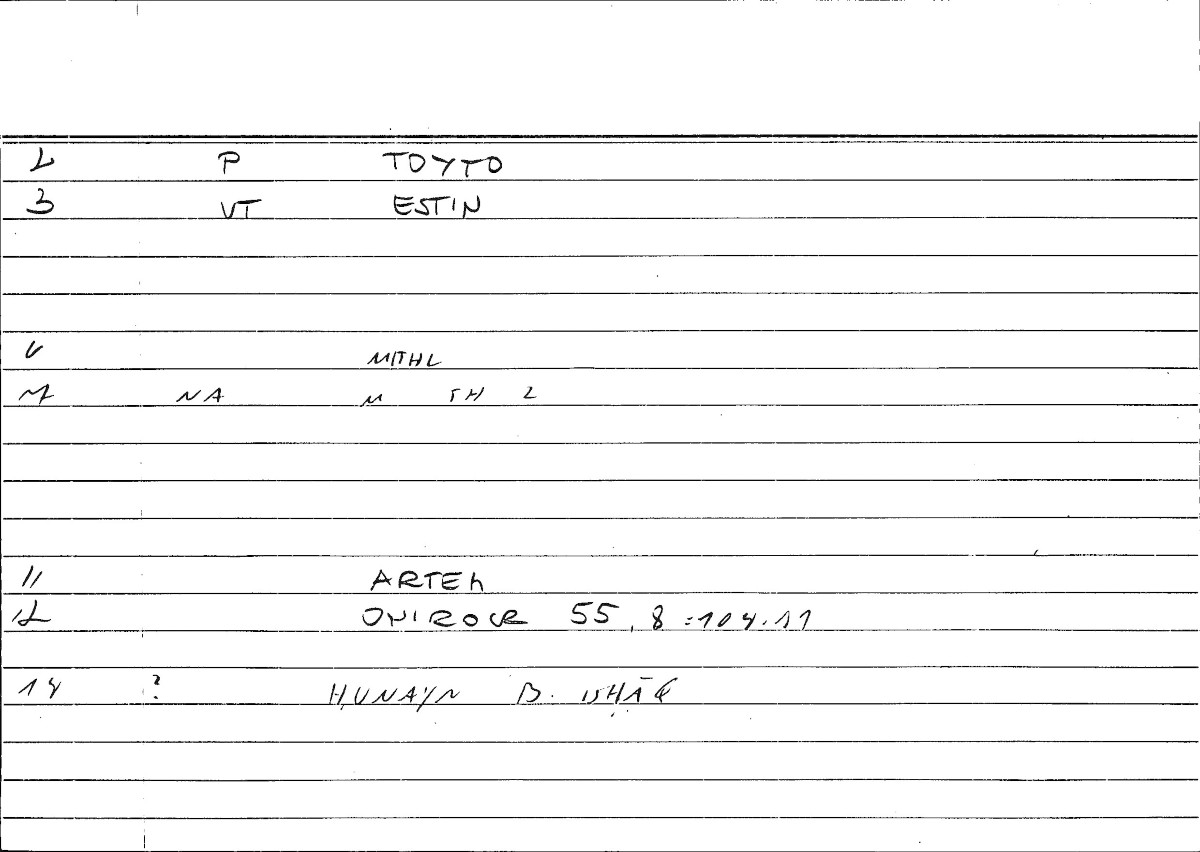 2 P TOYTO
3 VT ESTIN
6 MITHL
7 NA M TH L
11 ARTEM
12 ONIROCR 55, 8 :104.11
14 ? ḤUNAYN B. ISḤĀQ